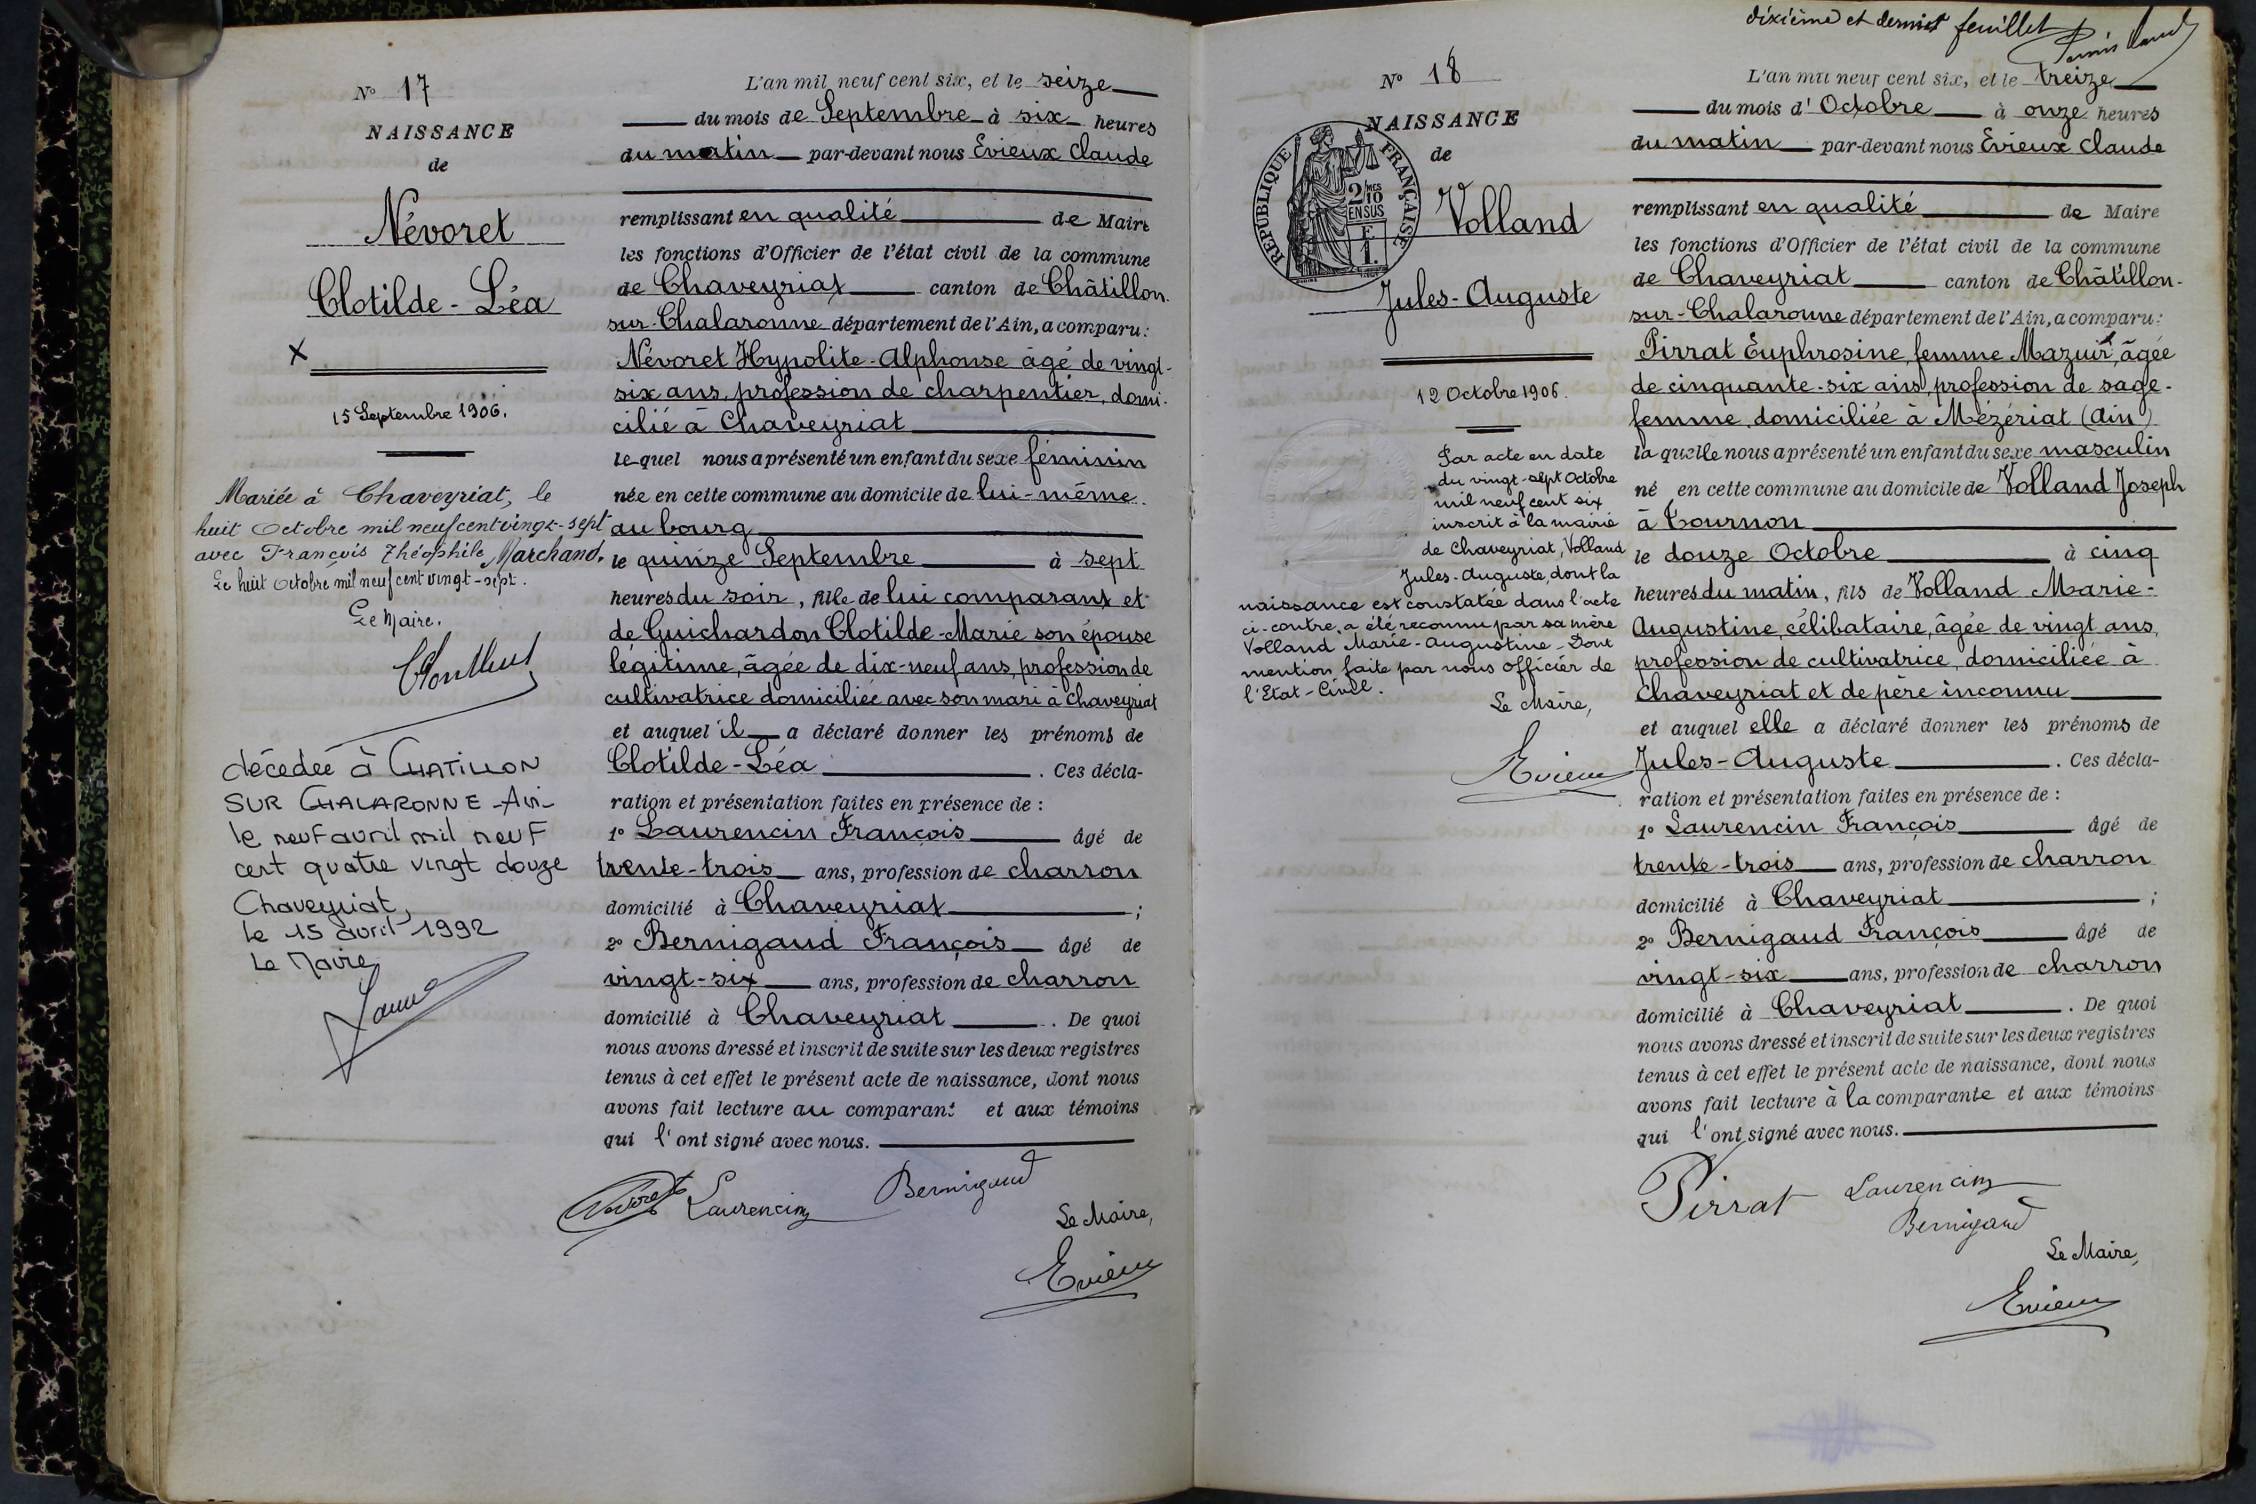 Nº 17
NAISSANCE
de
Névoret
Clotilde-Léa
X
15 Septembre 1906.
Mariée à Chaveyriat, le
huit Octobre mil neuf cent vingt-sept
avec François Théophile Marchand.
Le huit octobre mil neuf cent vingt-sept.
Le Maire.
décédée à CHATILLON
SUR CHALARONNE -Ain-
le neuf avril mil neuf
cent quatre vingt douze
Chaveyriat,
le 15 avril 1992
Le Maire
L'an mil neuf cent six, et le seize
du mois de Septembre à six heures
du matin par-devant nous Evieux Claude
remplissant en qualité de Maire
les fonctions d'Officier de l'état civil de la commune
de Chaveyriat canton de Châtillon-
sur-Chalaronne département de l'Ain, a comparu:
Névoret Hypolite-Alphonse âgé de vingt-
six ans, profession de charpentier, domi-
cilié à Chaveyriat
lequel nous a présenté un enfant du sexe féminin
née en cette commune au domicile de lui-même
au bourg
le quinze Septembre à sept
heures du soir, fille de lui comparant et
de Guichardon Clotilde-Marie son épouse
légitime, âgée de dix-neuf ans, profession de
cultivatrice domiciliée avec son mari à Chaveyriat
et auquel il a déclaré donner les prénoms de
Clotilde-Léa. Ces décla-
ration et présentation faites en présence de :
1º Laurencin François âgé de
trente-trois ans, profession de charron
domicilié à Chaveyriat ;
2º Bernigaud François âgé de
vingt-six ans, profession de charron
domicilié à Chaveyriat. De quoi
nous avons dressé et inscrit de suite sur les deux registres
tenus à cet effet le présent acte de naissance, dont nous
avons fait lecture au comparant et aux témoins
qui l'ont signé avec nous.
Névoret Laurencin Bernigaud
Le Maire,
Evieux
dixième et dernier feuillet
Nº 18
NAISSANCE
de
RÉPUBLIQUE FRANÇAISE
2/10 MES
EN SUS
F
1.
Volland
Jules-Auguste
12 Octobre 1906.
Par acte en date
du vingt-sept Octobre
mil neuf cent six
inscrit à la mairie
de Chaveyriat, Volland
Jules-Auguste, dont la
naissance est constatée dans l'acte
ci-contre, a été reconnu par sa mère
Volland Marie-Augustine - Dont
mention faite par nous officier de
l'Etat-Civil.
Le Maire,
Evieux
L'an mil neuf cent six, et le treize
du mois d'Octobre à onze heures
du matin par-devant nous Evieux Claude
remplissant en qualité de Maire
les fonctions d'Officier de l'état civil de la commune
de Chaveyriat canton de Châtillon-
sur-Chalaronne département de l'Ain, a comparu:
Pirrat Euphrosine, femme Mazuir, âgée
de cinquante-six ans, profession de sage-
femme, domiciliée à Mézériat (Ain)
laquelle nous a présenté un enfant du sexe masculin
né en cette commune au domicile de Volland Joseph
à Tournon
le douze Octobre à cinq
heures du matin, fils de Volland Marie-
Augustine, célibataire, âgée de vingt ans,
profession de cultivatrice, domiciliée à
Chaveyriat et de père inconnu
et auquel elle a déclaré donner les prénoms de
Jules-Auguste. Ces décla-
ration et présentation faites en présence de :
1º Laurencin François âgé de
trente-trois ans, profession de charron
domicilié à Chaveyriat ;
2º Bernigaud François âgé de
vingt-six ans, profession de charron
domicilié à Chaveyriat. De quoi
nous avons dressé et inscrit de suite sur les deux registres
tenus à cet effet le présent acte de naissance, dont nous
avons fait lecture à la comparante et aux témoins
qui l'ont signé avec nous.
Pirrat Laurencin
Bernigaud
Le Maire,
Evieux